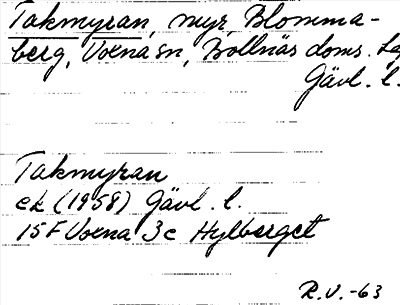 Takmyran, myr, Blomma-
berg, Voxna sn, Bollnäs doms. Lag
Gävl. l.
Takmyran
ek (1958) Gävl. l.
15F Voxna 3c Hylberget
R.V. -63